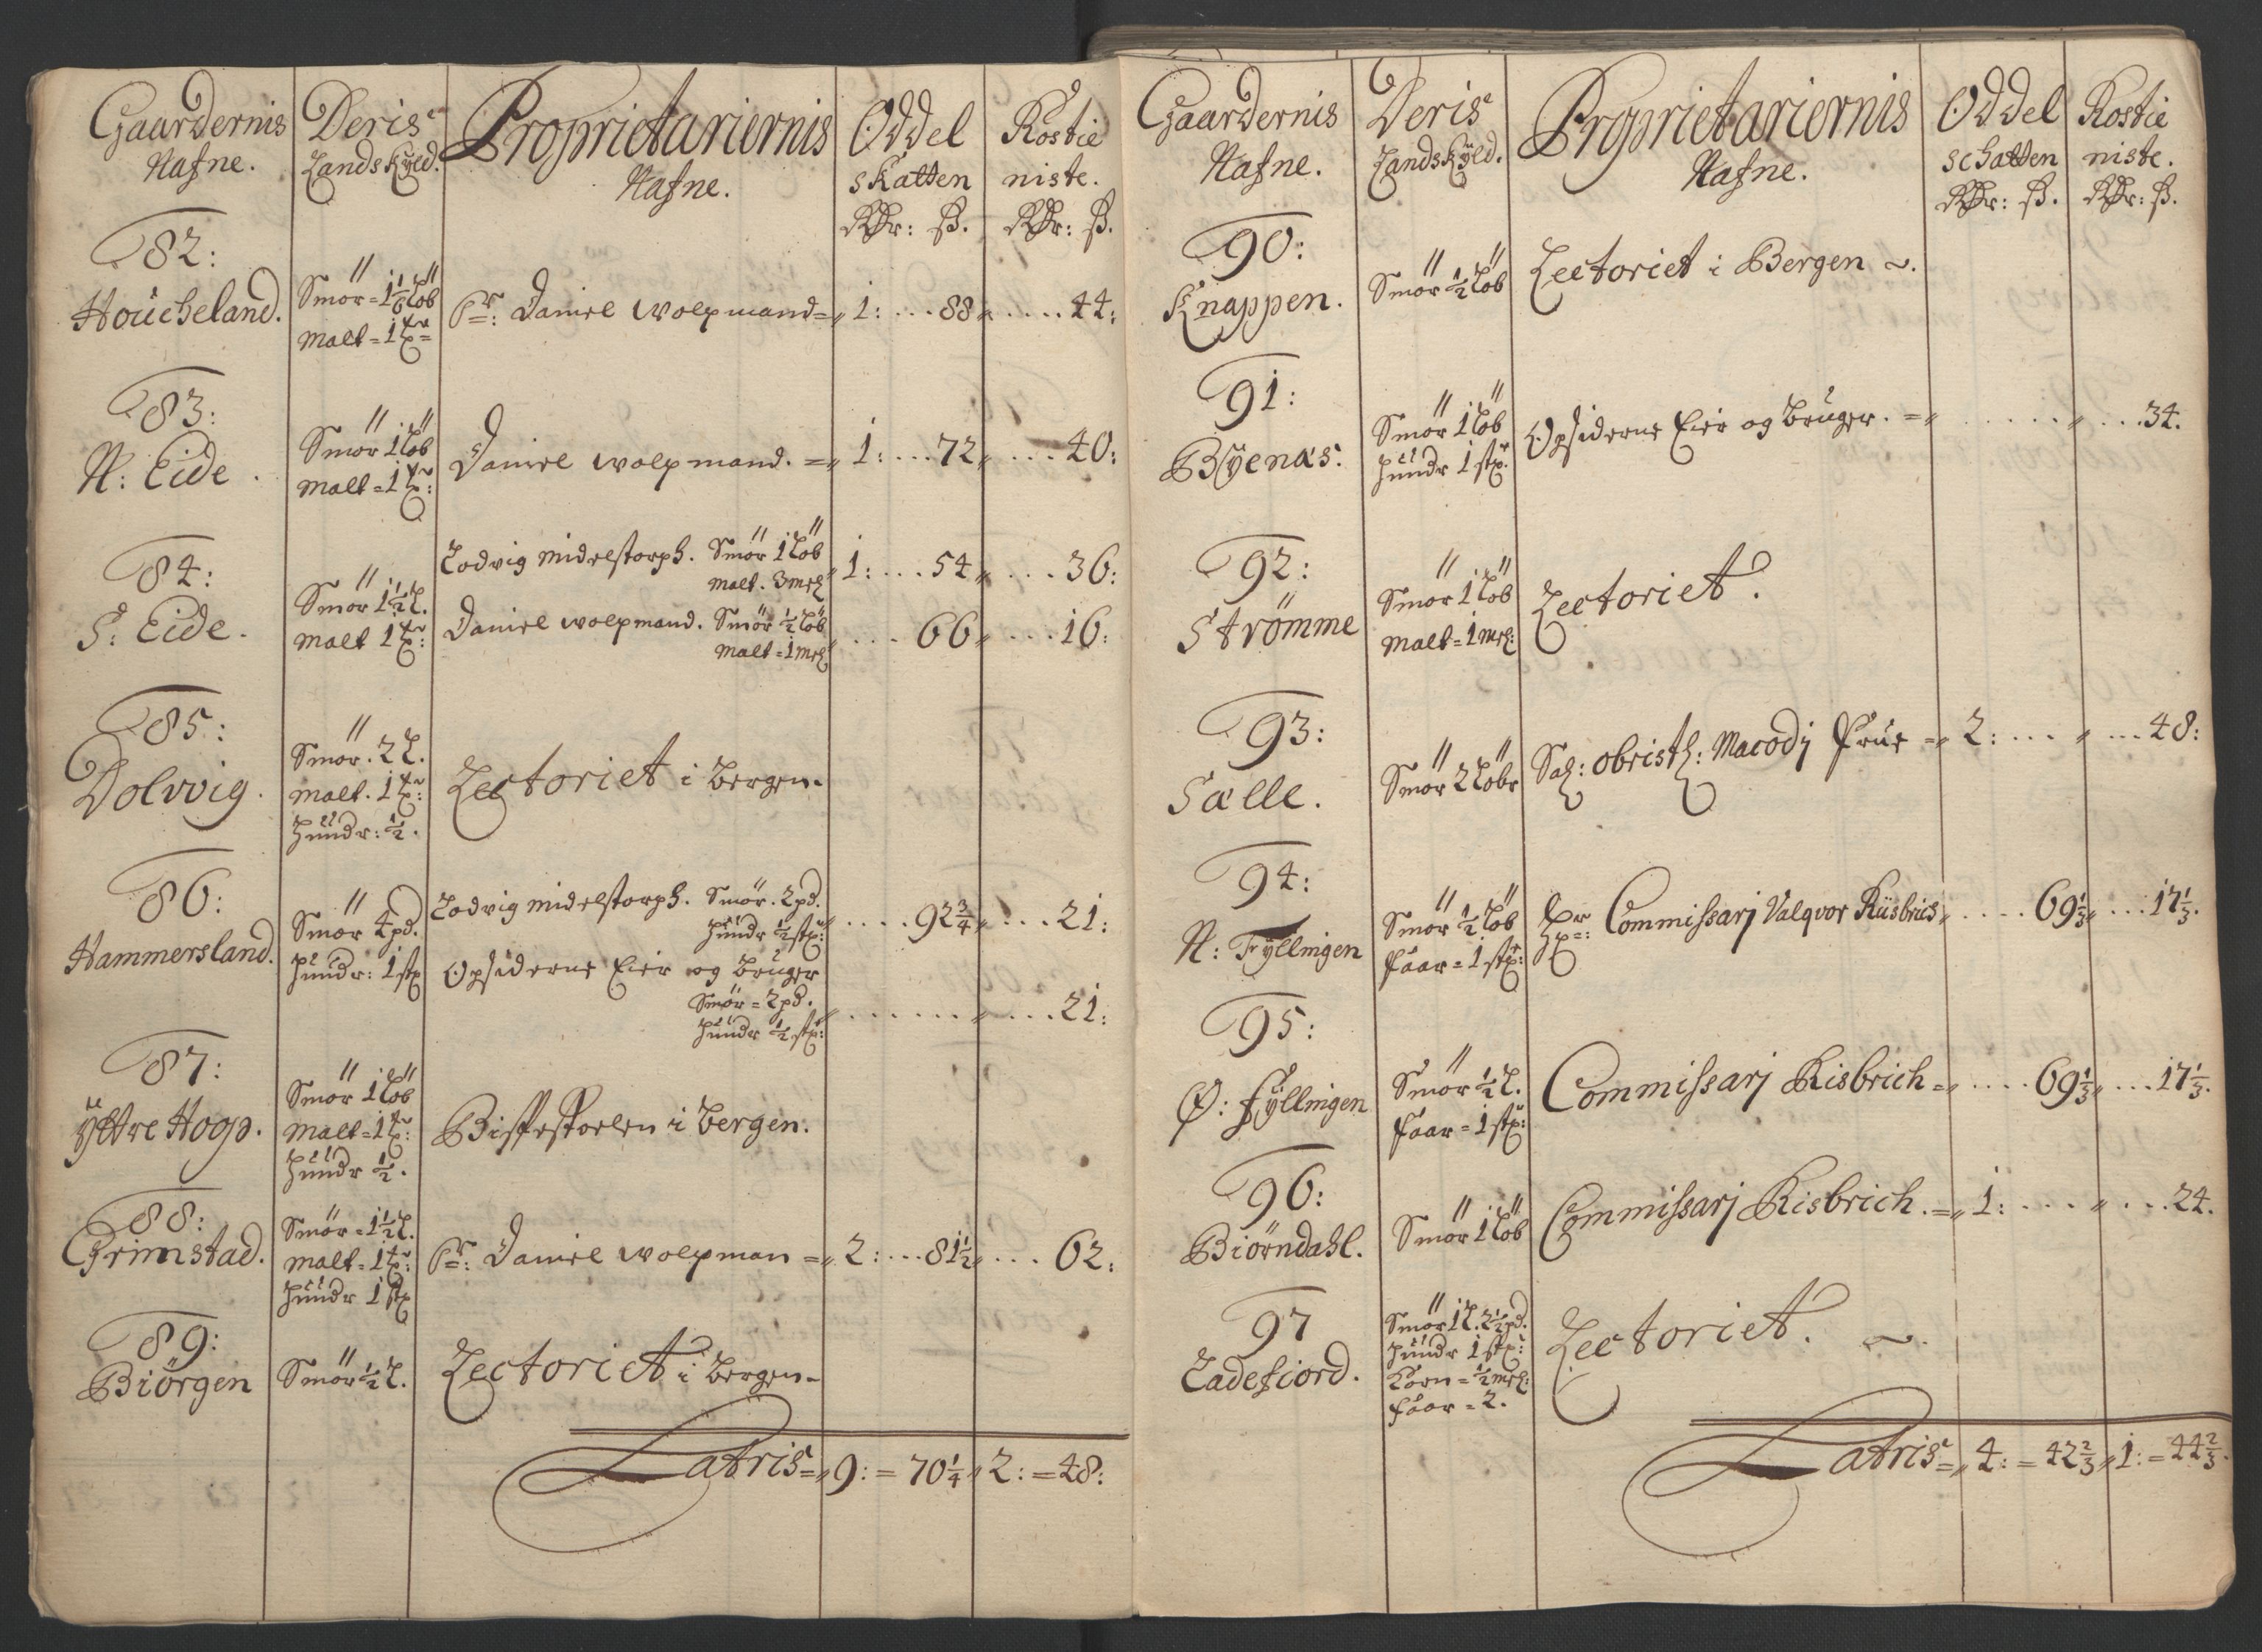 Gaardernis Nafne.
Deris Landskyld.
Proprietariernis Nafne.
Oddel skatten Rdr: ß.
Rostieniste. Rdr: ß.
82:
Houcheland.
Smör = 1 1/6 Löb
Malt = 1 tr
Sr: Daniel Wolpmand = 1: ... 88 ..... 44:
83:
N: Eide.
Smör 1 Löb
Malt = 1 tr:
Daniel Wolpmand. = 1: ... 72 .... 40:
84:
S: Eide.
Smör 1 1/2 L.
Malt 1 tr:
Lodvig Midelstorph. Smör 1 Löb
Malt. 3 mrl 1: ... 54 .... 36:
Daniel Wolpmand. Smör 1/2 Löb
Malt = 1 mrl ... 66 .... 16:
85:
Dolvvig.
Smör. 2 L.
Malt. 1 tr:
Hundr: 1/2.
Lectoriet i Bergen.
86:
Hammersland.
Smör 4 pd.
Hundr: 1 stp
Lodvig Midelstorph. Smör. 2 pd.
Hundr 1/2 stp: .... 92 3/4 .... 21:
Opsiderne Eier og Bruger
Smör = 2 pd.
Hundr 1/2 stp: ...... ... 21:
87:
Yttre Hoop.
Smör 1 Löb
Malt = 1 tr:
Hundr 1/2.
Bispestoelen i Bergen.
88:
Grimstad.
Smör = 1 1/2 L.
Malt = 1 tr:
Hundr 1 stp
Sr: Daniel Wolpman = 2: ... 81 1/2 ... 62:
89:
Biörgen
Smör 1/2 L.
Lectoriet i Bergen.
Latris = 9: = 70 1/4 2: = 48:
Gaardernis Nafne.
Deris Landskyld.
Proprietariernis Nafne.
Oddel schatten Rdr: ß.
Rostieniste. Rdr: ß.
90:
Knappen.
Smör 1/2 Löb
Lectoriet i Bergen ~.
91:
Byenæs:
Smör 1 Löb
Hundr 1 stp:
Opsiderne Eier og Bruger. = ..... ... 34.
92:
Strömme
Smör 1 Löb
Malt = 1 mrl:
Lectoriet.
93:
Sælle.
Smör 2 Löbr
Sal: Obristl: Macodj Frue = 2: ... ... 48:
94:
N: Fyllingen
Smör 1/2 Löb
Faar = 1 stp:
Hr: Commissarj Valqvor Riisbrich .... 69 1/3 ... 17 1/3.
95:
Ø: Fyllingen
Smör 1/2 L.
Faar = 1 stp:
Commissarj Risbrich = .... 69 1/3 ... 17 1/3.
96:
Biörndahl.
Smör 1 Löb
Commissarj Risbrich. = 1: ... ... 24.
97
Ladefiord.
Smör 1 L. 2 1/2 pd.
Hundr 1 stp:
Korn = 1/2 mrl:
Faar = 2.
Lectoriet. ~.
Latris = 4: = 42 2/3 1: = 44 2/3.